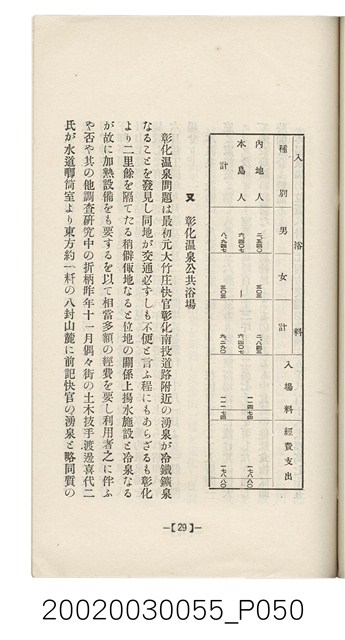 入浴料
種別 男 女 計 入場料 經費支出
内地人
本島人
計
又 彰化温泉公共浴場
彰化温泉問題は最初元大竹庄快官彰化南投道路附近の湧泉が冷鐵鑛泉
なることを發見し同地が交通必ずしも不便と言ふ程にもあらざるも彰化
より二里餘を隔てたる稍僻陬地なると位地の關係上揚水施設と冷泉なる
が故に加熱設備をも要するを以て相當多額の經費を要し利用者之に伴ふ
や否や其の他調査研究中の折柄昨年十一月偶々街の土木技手渡邊喜代二
氏が水道喞筒室より東方約一粁の八卦山麓に前記快官の湧泉と略同質の
—【29】—
20020030055_P050